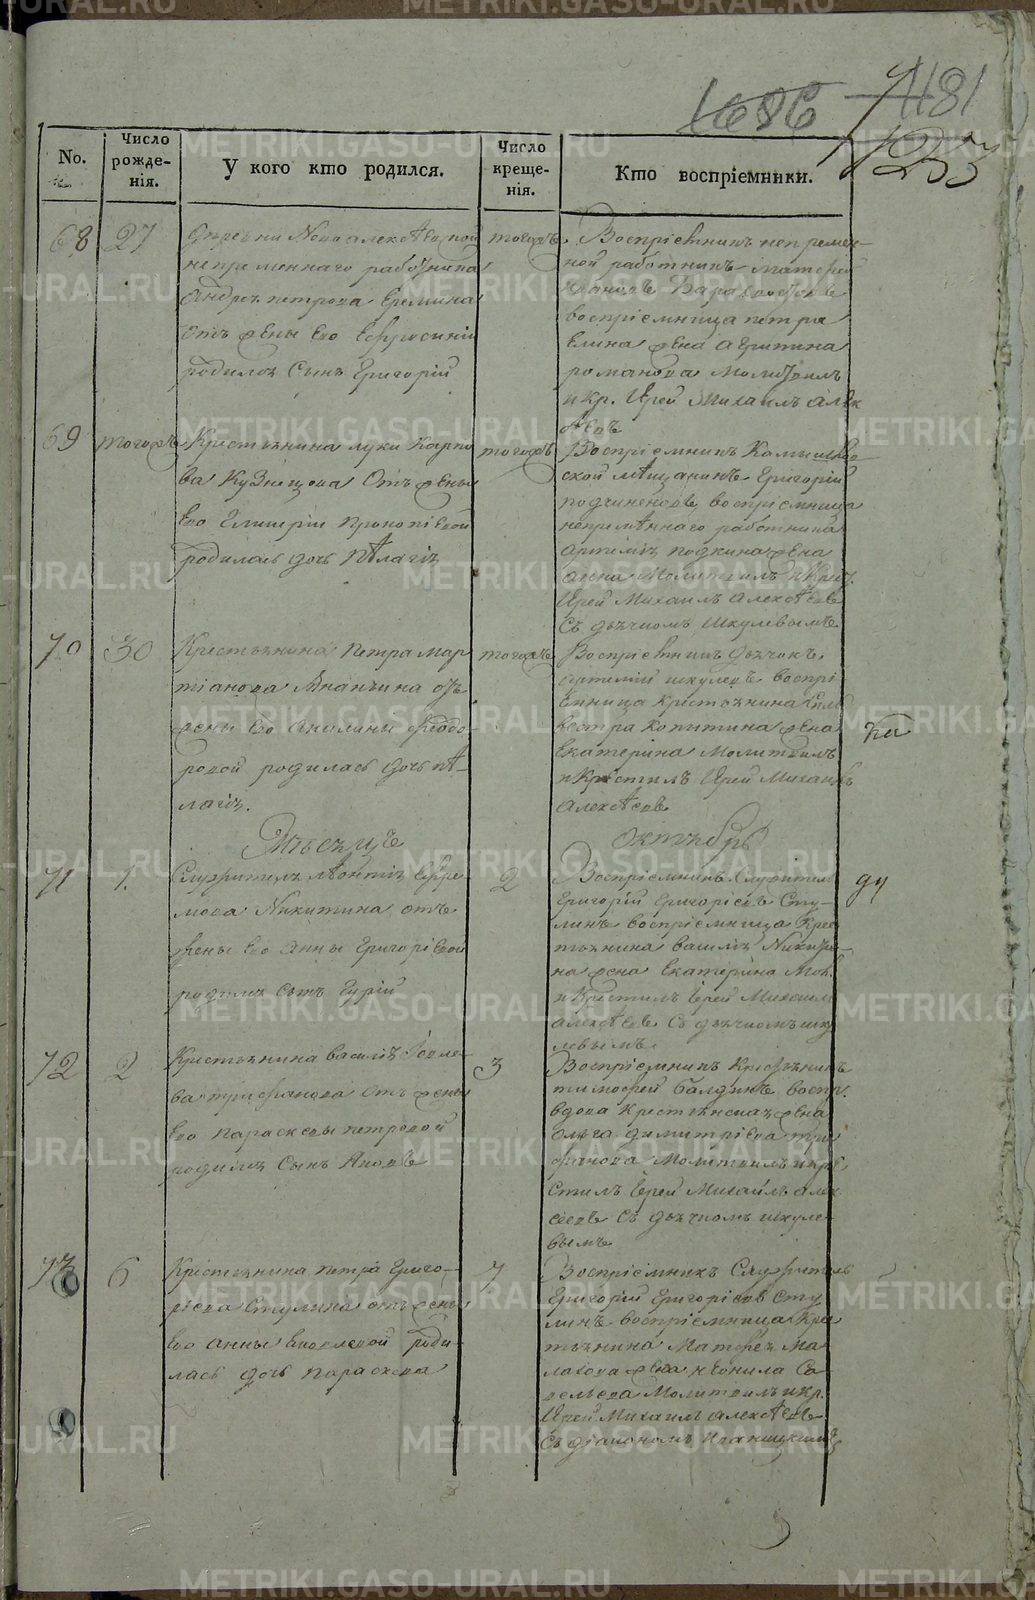 1686 1181
1253
No.
Число рожде-нія.
У кого кто родился.
Число креще-нія.
Кто воспріемники.
68 27
Деревни Новоалексѣевской
непременнаго работника
Андрея петрова Еремина
отъ жены Его Ефросиніи
родился Сынъ Григорій
тогожъ
Воспріемникъ непремен-
ной работникъ Матфей
Ивановъ
воспріемница петра
Елина жена
романова Молитвилъ
и кр. Иерей Михаилъ Алек
сѣевъ
69 тогожъ
Крестьянина луки Карпо
ва Кузнецова Отъ жены
Его Гликеріи Прокопіевой
родилась дочь Пѣлагія
тогожъ
Воспріемникъ Камышлов
ской мѣщанинъ Григорій
воспріемница
непремѣннаго работника
Артемія жена
анна Молитвилъ и Крест.
Иерей Михаилъ Алексѣевъ
Съ дьячкомъ Шкулевымъ
70 30
Крестьянина Петра Мар
тіанова Ананьина отъ
жены Его Акилины Феодо
ровой родилась дочь пѣ-
лагія.
тогожъ
Воспріемникъ дьячокъ
Артемій шкулевъ воспрі
емница крестьянина Силь
вестра Копытина жена
Екатерина Молитвилъ
и Крестилъ Иерей Михаилъ
Алексѣевъ
Мѣсяцъ
октябрь
71 1.
Служителя лѣонтія Ефре
мова Никитина отъ
жены Его Анны Григоріевой
родился сынъ Гурій
2
Воспріемникъ Служитель
Григорій Григоріевъ Сту-
линъ воспріемница Крес
тьянина василія Никити-
на жена Екатерина Мол.
и Крестилъ Іерей Михаилъ
алексѣевъ Съ дьячкомъ шку
левымъ.
72 2
Крестьянина василія Іовле
ва трифанова отъ жены
Его Параскевы петровой
родился Сынъ Яковъ
3
Воспріемникъ Крестьянинъ
тимофей балдинъ воспр.
вдова крестьянская жена
Ольга димитріева три
фанова Молитвилъ и кре
стилъ Іерей Михаилъ алек
сѣевъ съ дьячкомъ шкуле
вымъ
73 6
Крестьянина петра Григо-
ріева Стулина отъ жены
Его анны яковлевой роди-
лась дочь параскева
7
Воспріемникъ Служитель
Григорій Григоріевъ Сту
линъ воспріемница Кре
стьянина Матфея Ма
лахова жена неонила Са
велъева Молитвилъ и кр.
Иерей Михаилъ алексѣевъ
съ діакономъ
METRIKI.GASO-URAL.RU